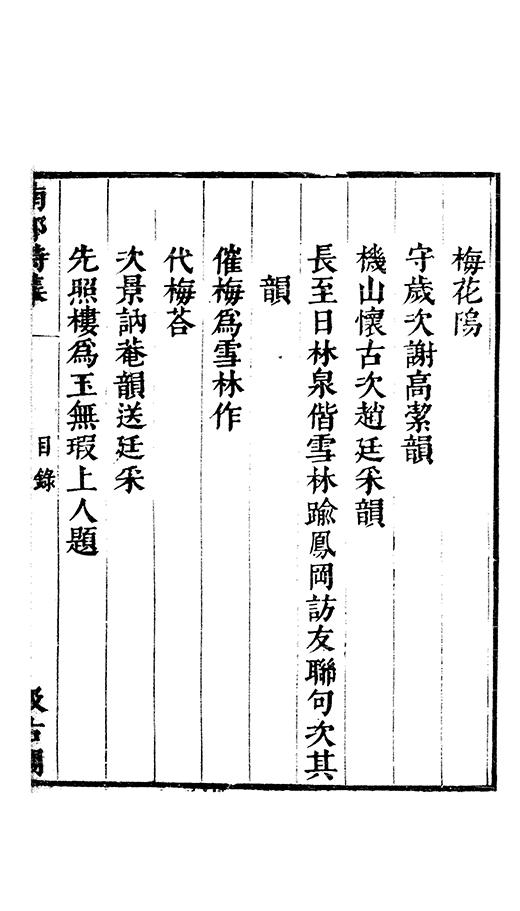 梅花隖
守歲次謝高潔韻
機山懷古次趙廷采韻
長至日林泉偕雪林踰鳳岡訪友聯句次其
韻
催梅爲雪林作
代梅荅
次景訥菴韻送廷采
先照樓爲玉無瑕上人題
目錄
汲古閣